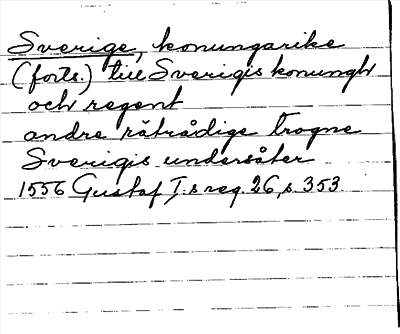 Sverige, konungarike
(forts.) till Sverigis konungh
och regent
andre rätrådige trogne
Sverigis undersåter
1556 Gustaf I:s reg. 26, s. 353